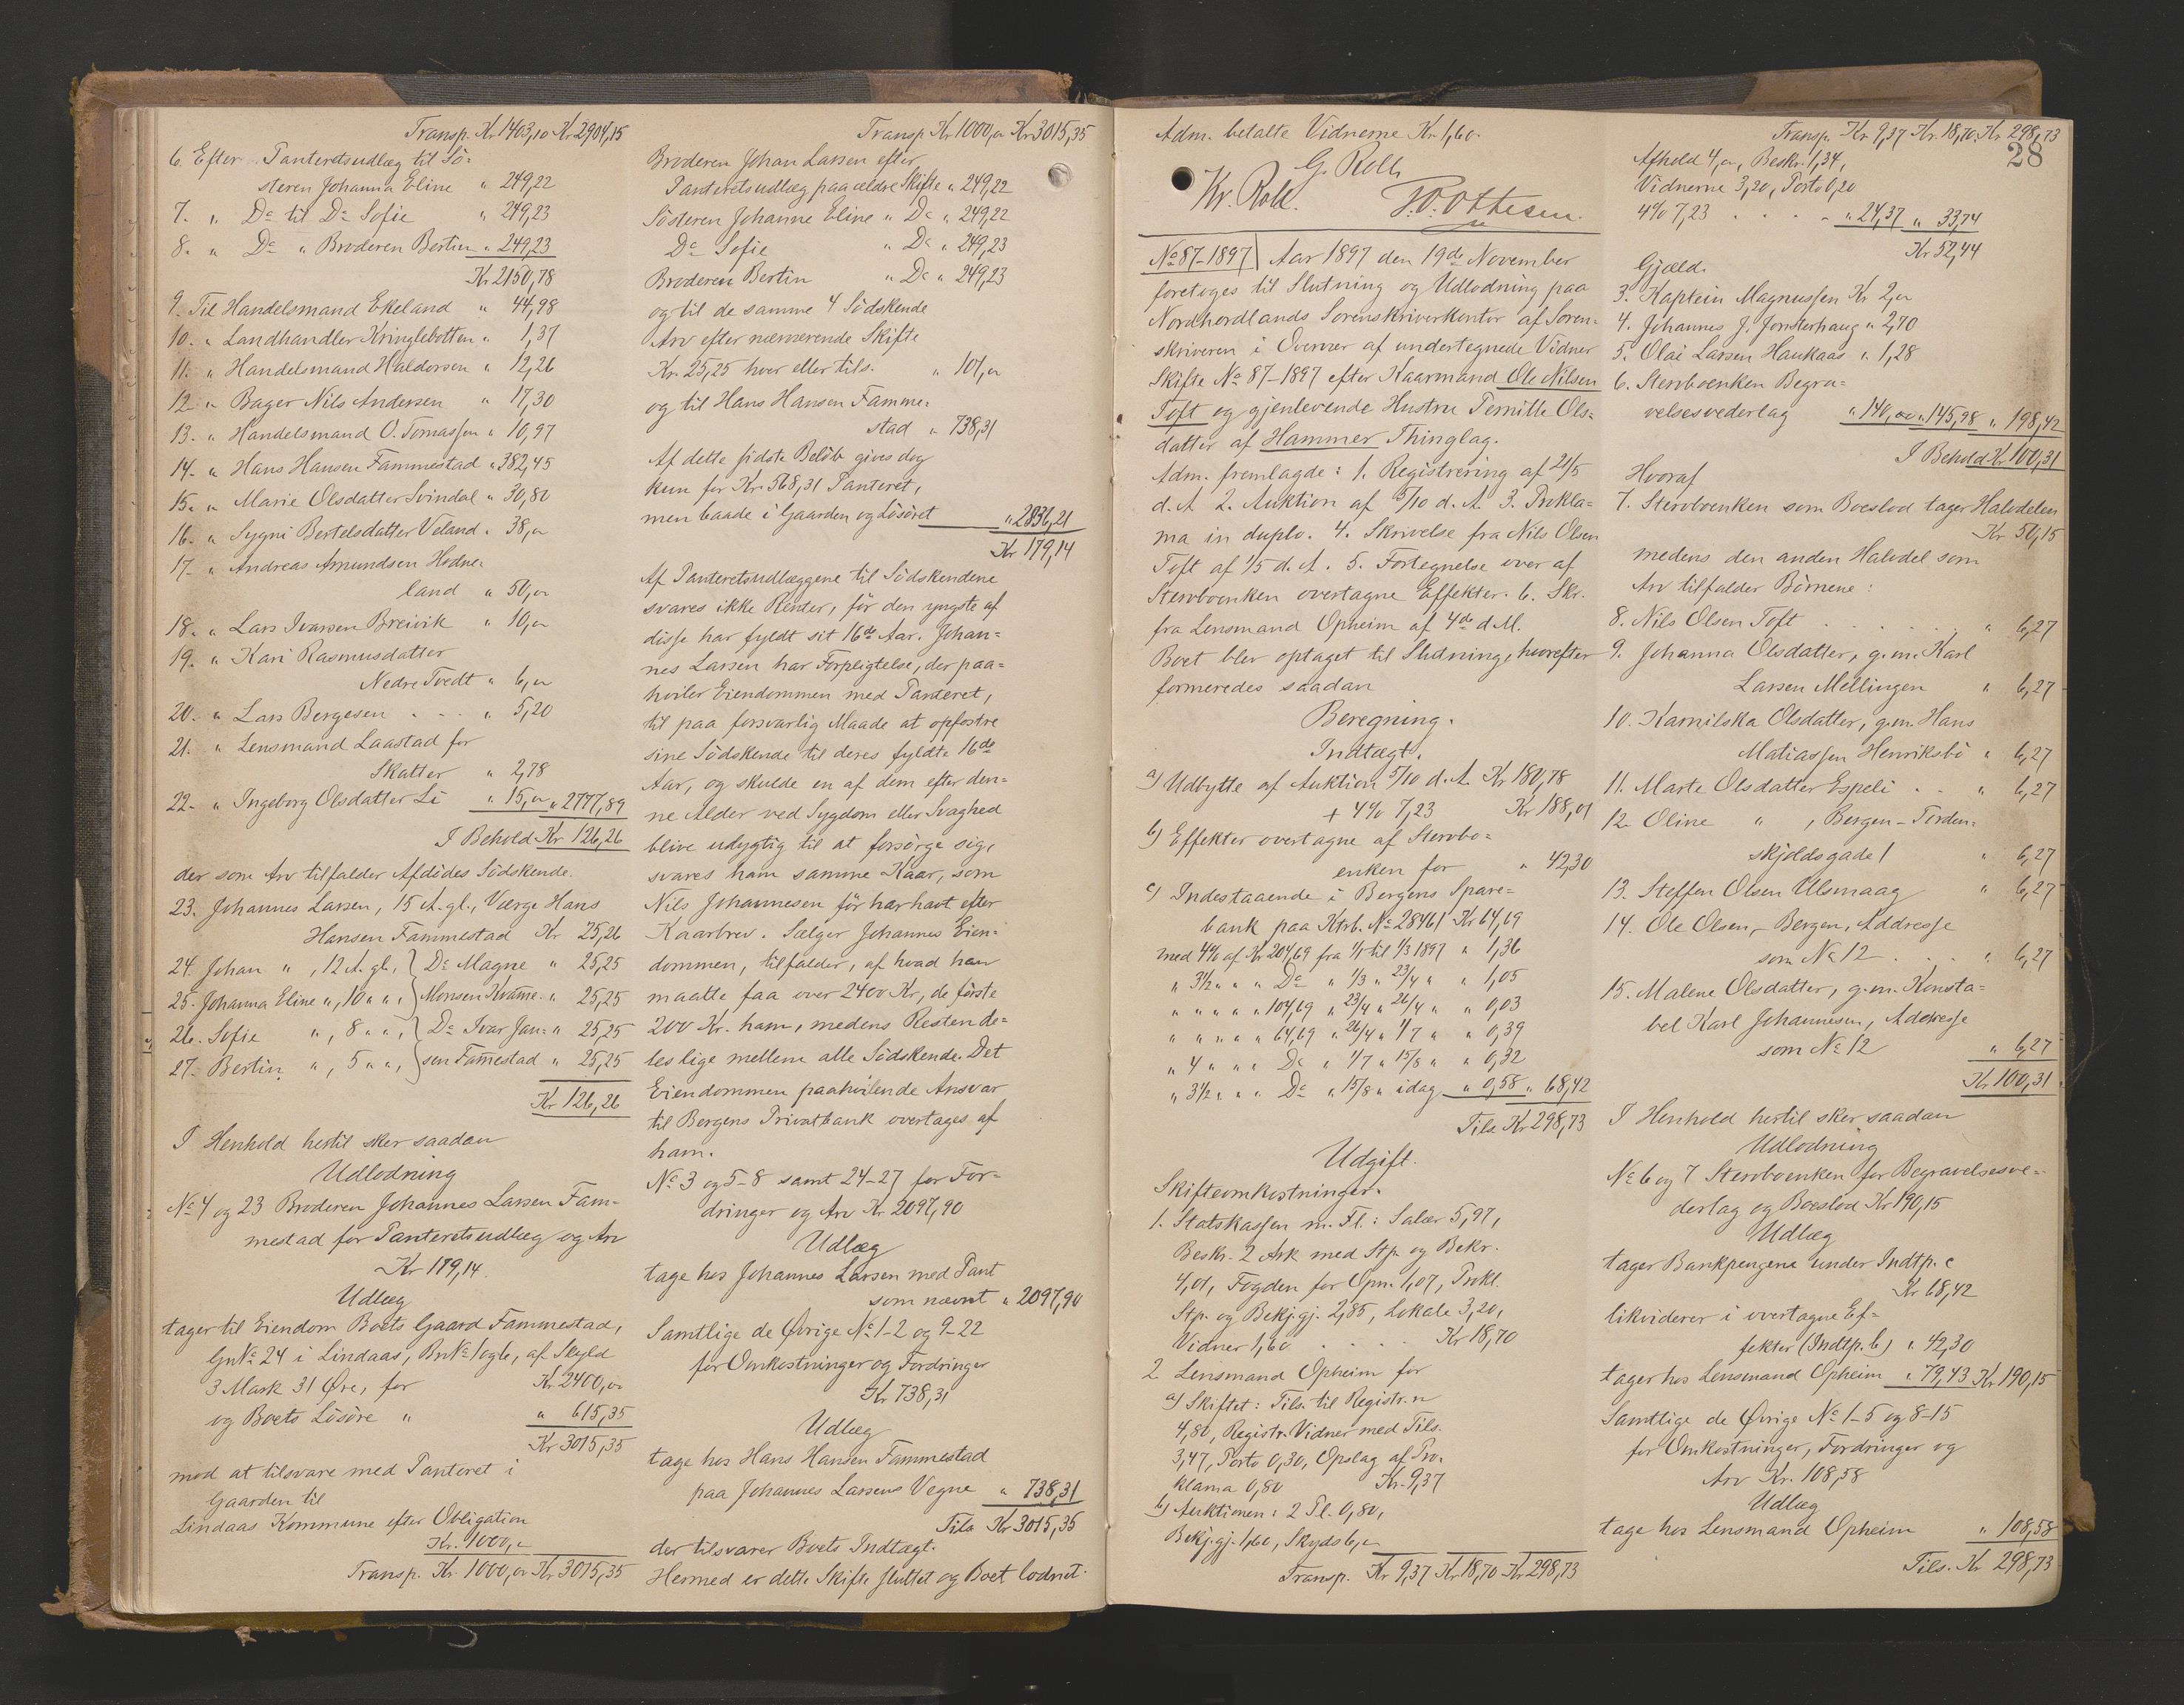 Transp. Kr 1403,10 Kr 2904,15
6. Efter Panteretsudlæg til Sö=
steren Johanna Eline " 249,22
7. " Do til Do Sofie " 249,23
8. " Do " Broderen Bertin " 249,23
Kr 2150,78
9. Til Handelsmand Ekeland " 44,98
10. " Landhandler Kringlebotten " 1,37
11. " Handelsmand Haldorsen " 12,26
12. " Bager Nils Andersen " 17,30
13. " Handelsmand O. Tomassen " 10,97
14. " Hans Hansen Fammestad " 382,45
15. " Marie Olsdatter Svindal " 30,80
16. " Sygni Bertelsdatter Veland " 38,"
17. " Andreas Amundsen Hodne=
land " 50,"
18. " Lars Ivarsen Breivik " 10,"
19. " Kari Rasmusdatter
Nedre Tvedt " 6,"
20. " Lars Bergesen . - . " 5,20
21. " Lensmand Laastad for
Skatter " 2,78
22. " Ingeborg Olsdatter Li " 15," " 2777,89
I Behold Kr 126,26
der som Arv tilfalder Afdödes Södskende.
23. Johannes Larsen, 15 A. gl., Værge Hans
Hansen Fammestad Kr 25,26
24. Johan " , 12 A. gl., } Do Magne " 25,25
25. Johanna Eline " , 10 " " , } Monsen Kvamme " 25,25
26. Sofie " , 8 " " , } Do Ivar Jan= " 25,25
27. Bertin " , 5 " " , } sen Fammestad " 25,25
Kr 126,26
I Henhold hertil sker saadan
Udlodning
No 4 og 23 Broderen Johannes Larsen Fam=
mestad for Panteretsudlæg og Arv
Kr 179,14.
Udlæg
tager til Eiendom Boets Gaard Fammestad,
Gn No 24 i Lindaas, Bn No 1 og 6, af Skyld
3 Mark 31 Øre, for Kr 2400,"
og Boets Lösöre " " 615,35
Kr 3015,35
mod at tilsvare med Panteret i
Gaarden til
Lindaas Kommune efter Obligation
Kr. 1000,"
Transp. Kr 1000," Kr 3015,35
Transp Kr 1000," Kr 3015,35
Broderen Johan Larsen efter
Panteretsudlæg paa ældre Skifte " 249,22
Sösteren Johanne Eline " Do " 249,22
Do Sofie " Do " 249,23
Broderen Bertin " Do " 249,23
og til de samme 4 Södskende
Arv efter nærværende Skifte
Kr. 25,25 hver eller tils. " 101,"
og til Hans Hansen Famme=
stad " 738,31
Af dette sidste Belöb gives dog
kun for Kr. 568,31 Panteret,
men baade i Gaarden og Lösöret " 2836,21
Kr 179,14
Af Panteretsudlæggene til Södskendene
svares ikke Renter, för den yngste af
disse har fyldt sit 16de Aar. Johan=
nes Larsen har Forpligtelse, der paa=
hviler Eiendommen med Panteret,
til paa forsvarlig Maade at opfostre
sine Södskende til deres fyldte 16de
Aar, og skulde en af dem efter den=
ne Alder ved Sygdom eller Svaghed
blive udygtig til at forsörge sig,
svares ham samme Kaar, som
Nils Johannesen för har havt efter
Kaarbrev. Sælger Johannes Eien=
dommen, tilfalder, af hvad han
maatte faa over 2400 Kr, de förste
200 Kr. ham, medens Resten de=
les lige mellem alle Södskende. Det
Eiendommen paahvilende Ansvar
til Bergens Privatbank overtages af
ham.
No 3 og 5-8 samt 24-27 for For=
dringer og Arv Kr 2097,90
Udlæg
tage hos Johannes Larsen med Pant
som nævnt " 2097,90
Samtlige de Øvrige No 1-2 og 9-22
for Omkostninger og Fordringer
Kr 738,31
Udlæg
tage hos Hans Hansen Fammestad
paa Johannes Larsens Vegne " 738,31
Tils Kr 3015,35
der tilsvarer Boets Indtægt.
Hermed er dette Skifte sluttet og Boet lodnet.
Adm. betalte Vidnerne Kr 1,60.
G. Roll,
Kr. Roll. F. O. Ottesen.
No 87-1897 Aar 1897 den 19de November
foretoges til Slutning og Udlodning paa
Nordhordlands Sorenskriverkontor af Soren=
skriveren i Overvær af undertegnede Vidner
Skifte No 87-1897 efter Kaarmand Ole Nilsen
Toft og gjenlevende Hustru Pernille Ols=
datter af Hammer Thinglag.
Adm. fremlagde: 1. Registrering af 21/5
d. A. 2. Auktion af 5/10 d. A. 3. Prokla=
ma in duplo. 4. Skrivelse fra Nils Olsen
Toft af 1/5 d. A. 5. Fortegnelse over af
Stervboenken overtagne Effekter. 6. Skr.
fra Lensmand Opheim af 4de d. M.
Boet blev optaget til Slutning, hvorefter
formeredes saadan
Beregning.
Indtægt.
a) Udbytte af Auktion 5/10 d. A. Kr 180,78
+ 4% 7,23 Kr 188,01
b) Effekter overtagne af Stervbo=
enken for " 42,30
c) Indestaaende i Bergens Spare=
bank paa Ktrb. No 28461 Kr 64,69
med 4% af Kr 204,69 fra 1/1 til 1/3 1897 " 1,36
" 3½ " " Do " 1/3 " 23/4 " " 1,05
" " " " 104,69 " 23/4 " 26/4 " " 0,03
" " " " 64,69 " 26/4 " 1/7 " " 0,39
" 4 " " Do " 1/7 " 15/8 " " 0,32
" 3½ " " Do " 15/8 " idag " 0,58 " 68,42
Tils Kr 298,73
Udgift.
Skifteomkostninger.
1. Statskassen m. Fl.: Salær 5,97,
Beskr. 2 Ark med Stp. og Bekr.
4,01, Fogden for Opn. 1,07, Prokl.
Stp. og Bekj.gj. 2,85, Lokale 3,20,
Vidner 1,60 . . . Kr 18,70
2. Lensmand Opheim for
a) Skiftet: Tils. til Registr.n
4,80, Registr. Vidner med Tils.
3,47, Porto 0,30, Opslag af Pro=
klama 0,80 Kr. 9,37
b) Auktionen: 2 Pl. 0,80,
Bekj.gj. 1,60, Skyds 6,"
Transp. Kr 9,37 Kr 18,70 Kr 298,73
Transp. Kr 9,37 Kr. 18,70 Kr 298,73
28
Afhold 4,", Beskr. 1,34,
Vidnerne 3,20, Porto 0,20
4% 7,23 . . . - " 24,37 " 33,74
Kr 52,44
Gjæld.
3. Kaptein Magnussen Kr 2,"
4. Johannes J. Jonsterhaug " 2,70
5. Olai Larsen Haukaas " 1,28
6. Stervboenken Begra=
velsesvederlag " 140,00 " 145,98 " 198,42
I Behold Kr 100,31
Hvoraf
7. Stervboenken som Boeslod tager Halvdelen
Kr 50,15
medens den anden Halvdel som
Arv tilfalder Börnene:
8. Nils Olsen Toft . . . . . " 6,27
9. Johanna Olsdatter, g. m. Karl
Larsen Mellingen " 6,27
10. Karnilska Olsdatter, g. m. Hans
Matiassen Henriksbö " 6,27
11. Marte Olsdatter Espeli . . " 6,27
12. Oline " , Bergen - Torden=
skjoldsgade 1 " 6,27
13. Steffen Olsen Ulsmaag " 6,27
14. Ole Olsen, - Bergen, Addresse
som No 12 . . . " 6,27
15. Malene Olsdatter, g. m. Konsta=
bel Karl Johannesen, Adresse
som No 12 " 6,27
Kr 100,31
I Henhold hertil sker saadan
Udlodning
No 6 og 7 Stervboenken for Begravelsesve=
derlag og Boeslod Kr 190,15
Udlæg
tager Bankpengene under Indtp. c
Kr 68,42
likviderer i overtagne Ef=
fekter (Indtp. b) " 42,30
tager hos Lensmand Opheim " 79,43 Kr 190,15
Samtlige de Øvrige No 1-5 og 8-15
for Omkostninger, Fordringer og
Arv Kr. 108,58
Udlæg
tage hos Lensmand Opheim " 108,58
Tils. Kr 298,73